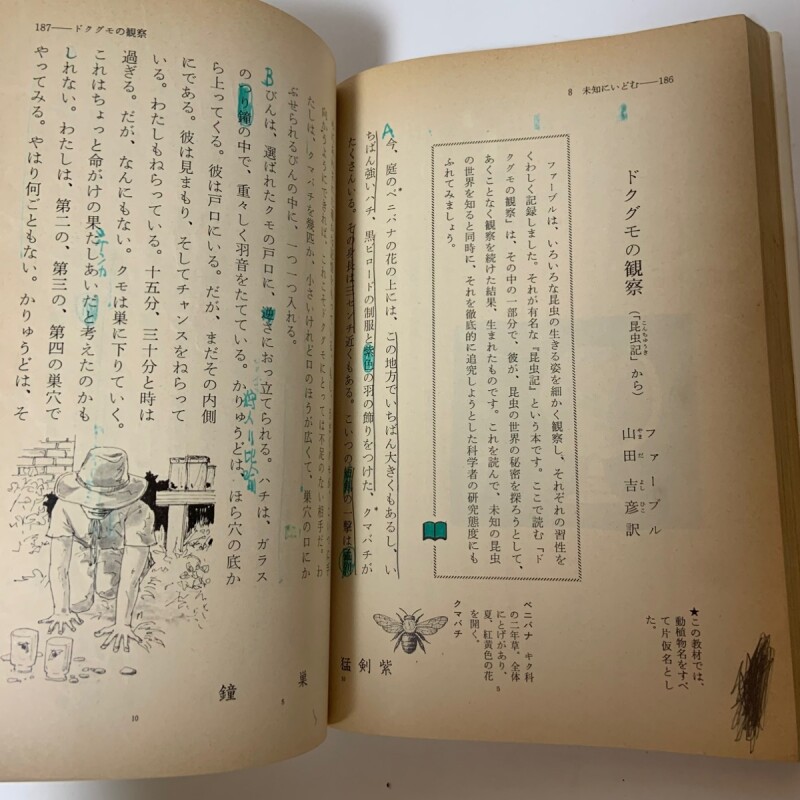 8 未知にいどむ――186
ドクグモの観察(「昆虫記」から)
ファーブル
山田吉彦訳
やまだよしひこ
こんちゅうき
★この教材では、
動植物名をすべ
て片仮名とし
た。
ファーブルは、いろいろな昆虫の生きる姿を細かく観察し、それぞれの習性を
くわしく記録しました。それが有名な『昆虫記』という本です。ここで読む「ド
クグモの観察」は、その中の一部分で、彼が、昆虫の世界の秘密を探ろうとして、
あくことなく観察を続けた結果、生まれたものです。これを読んで、未知の昆虫
の世界を知ると同時に、それを徹底的に追究しようとした科学者の研究態度にも
ふれてみましょう。
A
今、庭のベニバナの花の上には、この地方でいちばん大きくもあるし、い
ちばん強いハチ、黒ビロードの制服と紫色の羽の飾りをつけた、クマバチが
たくさんいる。その身長は三センチ近くもある。こいつの の一撃は
ベニバナ キク科
の二年草。全体
にとげがあり、
夏、紅黄色の花
を開く。
クマバチ
5
紫
剣
猛
10
187――ドクグモの観察
これこそドクグモにとっては不足のない相手だ。わ
たしは、クマバチを幾匹か、小さいけれど口のほうが広くて、巣穴の口にか
ぶせられるびんの中に、一つ一つ入れる。
B
びんは、選ばれたクモの戸口に、逆さにおっ立てられる。ハチは、ガラス
のつり鐘の中で、重々しく羽音をたてている。かりゅうどは、ほら穴の底か
ら上ってくる。彼は戸口にいる。だが、まだその内側
にである。彼は見まもり、そしてチャンスをねらって
いる。わたしもねらっている。十五分、三十分と時は
過ぎる。だが、なんにもない。クモは巣に下りていく。
これはちょっと命がけの果たしあいだと考えたのかも
しれない。わたしは、第二の、第三の、第四の巣穴で
やってみる。やはり何ごともない。かりゅうどは、そ
巣
鐘
10